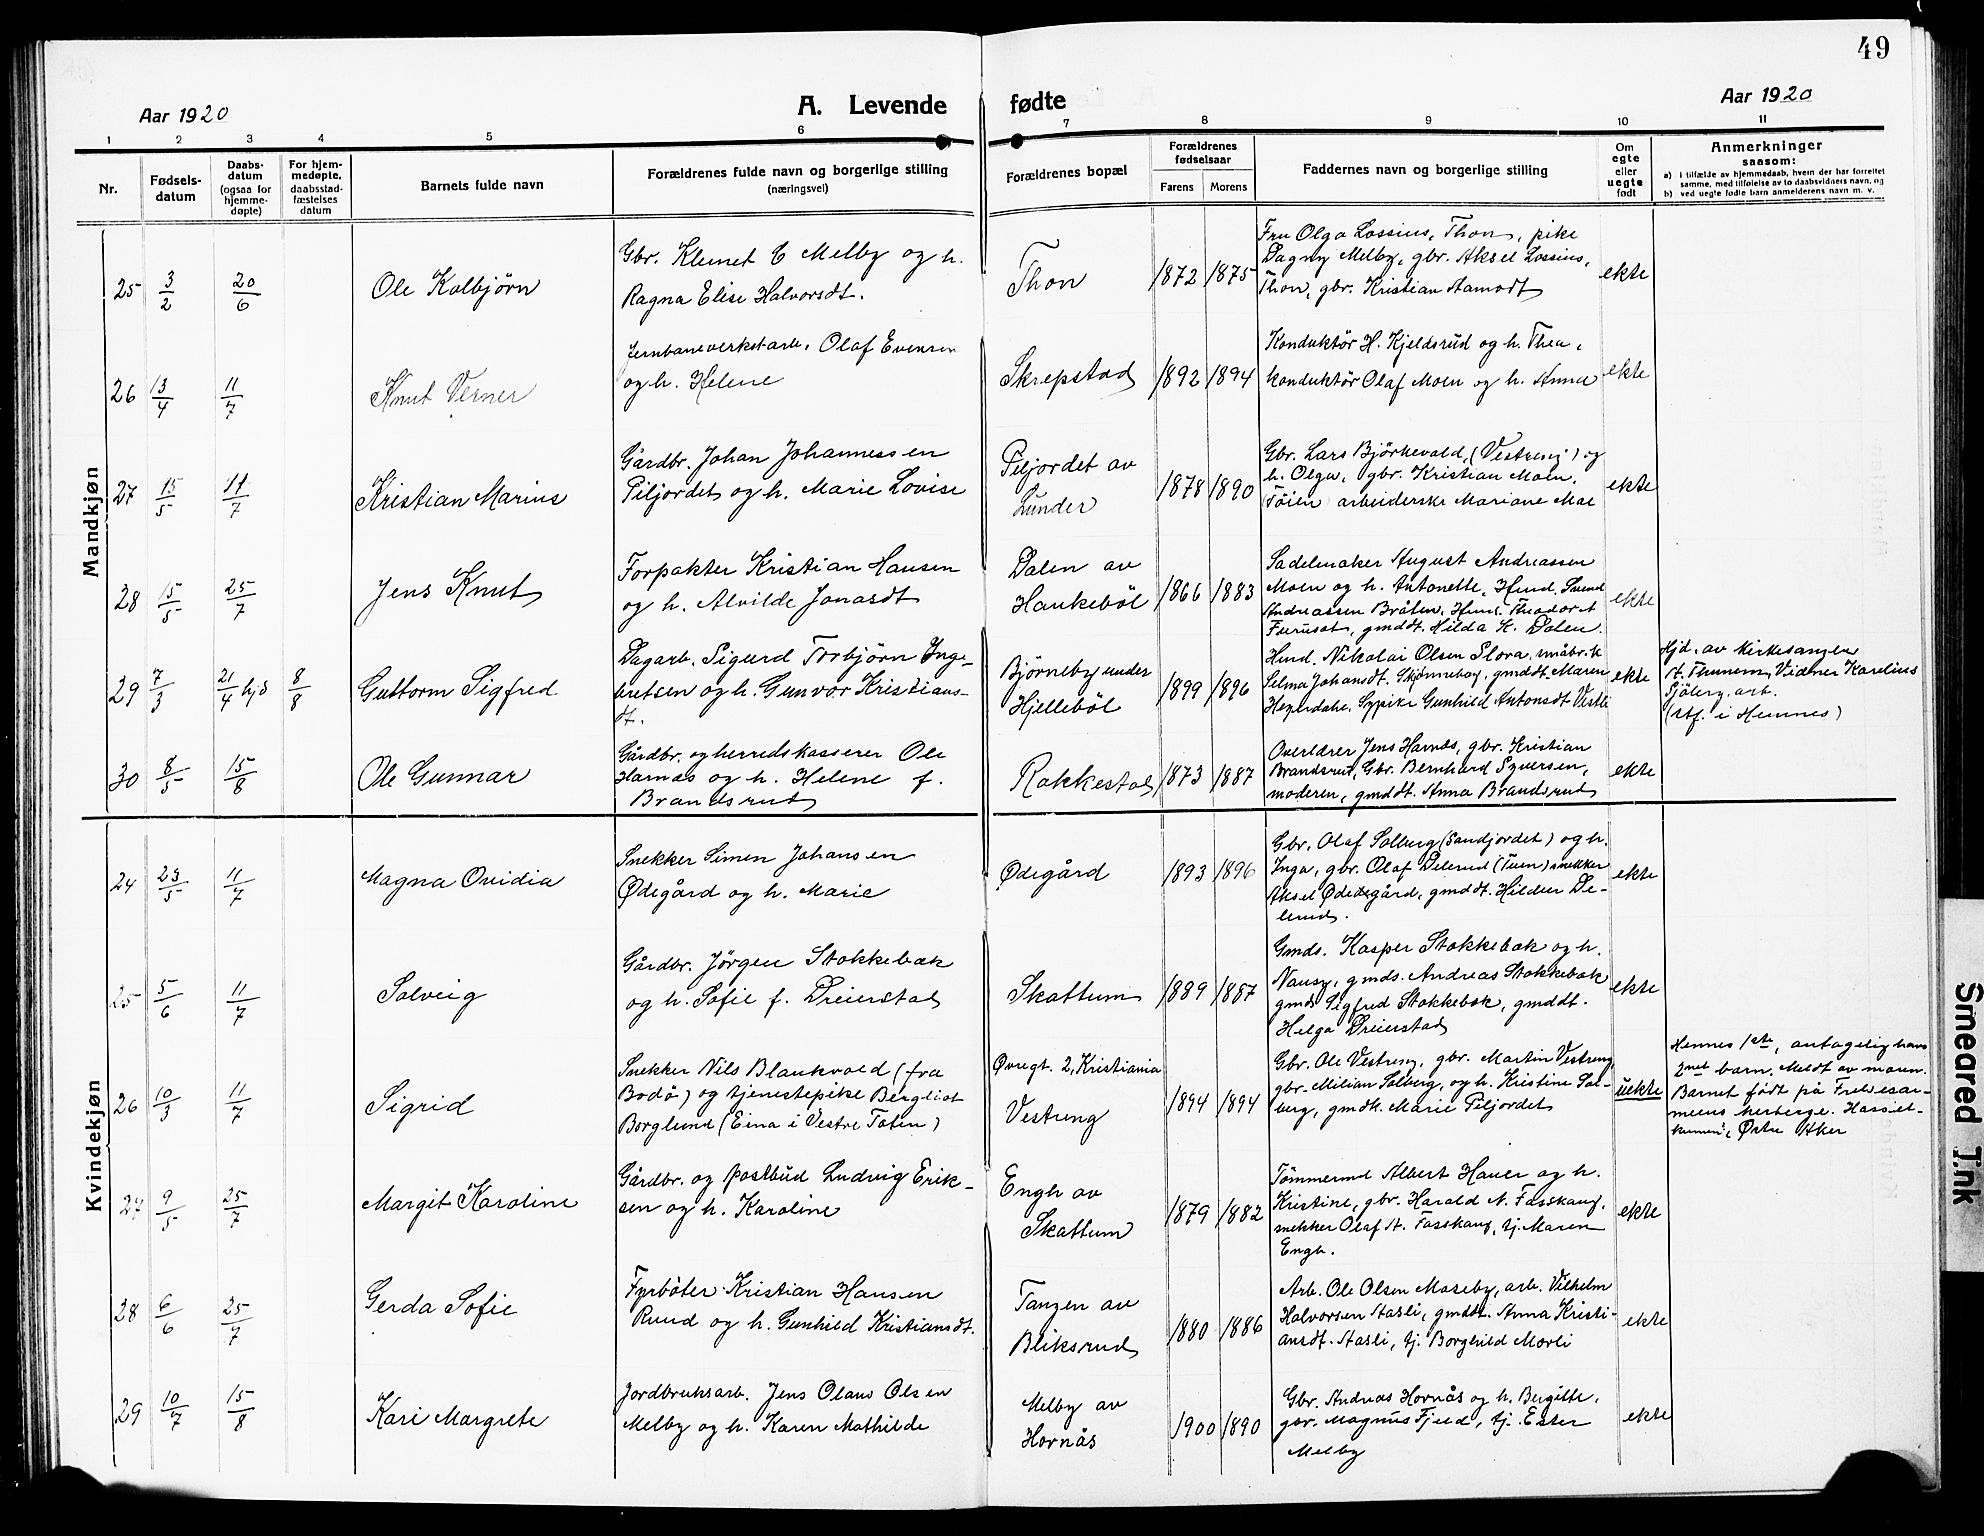 49
Aar 1920
A. Levende fødte
Aar 1920
1 2 3 4 5 6 7 8 9 10 11
Nr.
Fødsels-
datum
Daabs-
datum
(ogsaa for
hjemme-
døpte)
For hjem-
medøpte,
daabsstad-
fæstelses
datum
Barnets fulde navn
Forældrenes fulde navn og borgerlige stilling
(næringsvei)
Forældrenes bopæl
Forældrenes
fødselsaar
Farens Morens
Faddernes navn og borgerlige stilling
Om
egte
eller
uegte
født
Anmerkninger
saasom:
a) i tilfælde av hjemmedaab, hvem der har forrettet
samme, med tilføielse av to daabsvidners navn, og
b) ved uegte fødte barn anmelderens navn m. v.
Mandkjøn
25 3/2 20/6 Ole Kolbjörn
Gbr. Klemet C Melby og h.
Ragna Elise Halvorsdt.
Thon
1872 1875
Fru Olga Lossius, Thon, pike
Dagny Melby, gbr. Aksel Lossius,
Thon, gbr. Kristian Aamodt
ekte
26 13/4 11/7 Knut Verner
Jernbaneverkstarb. Olaf Evensen
og h. Helene
Skrepstad
1892 1894
Konduktör H. Kjeldsrud og h. Thea,
konduktör Olaf Moen og h. Anna
ekte
27 15/5 11/7 Kristian Marius
Gårdbr. Johan Johannessen
Piljordet og h. Marie Lovise
Piljordet av
Lunder
1878 1890
Gbr. Lars Björkevold, (Vestreng) og
h. Olga, gbr. Kristian Moen,
Töien arbeiderske Mariane Moe
ekte
28 15/5 25/7 Jens Knut
Forpakter Kristian Hansen
og h. Alvilde Jonasdt
Dalen av
Haukeböl
1866 1883
Sadelmaker August Andreassen
Moen og h. Antonette, Hmd. Svend
Andreassen Bråten, Hmd. Theodor A
Furuset, gmddt. Hilda K. Dalen.
ekte
29 7/3 21/4 hjd 8/8 Guttorm Sigfred
Dagarb. Sigurd Torbjörn Inge-
bretsen og h. Gunvor Kristians-
dt.
Björneby under
Hjelleböl
1899 1896
Hmd. Nikolai Olsen Flora, småbr.k
Selma Johansdt. Skjönnehag, gmddt. Maren
Sypike Gunhild Antonsdt Vestli
ekte
Hjd. av kirkesanger
A. Thunem, Vidner Karelius
Sjöberg, arb.
(stf. i Hennes)
30 8/5 15/8 Ole Gunnar
Gårdbr. og herredskasserer Ole
Harnæs og h. Helene f.
Brandsrud
Rakkestad
1873 1887
Overlærer Jens Harnæs, gbr. Kristian
Brandsrud, Gbr. Bernhard Syversen,
moderen, gmddt. Anna Brandsrud
ekte
Kvindekjøn
24 23/5 11/7 Magna Ovidia
Snekker Simen Johansen
Ødegård og h. Marie
Ødegård
1893 1896
Gbr. Olaf Solberg (Sandjordet) og h.
Inga, gbr. Olaf Delerud (Tuen) snekker
Aksel Ødegård, gmddt. Hildur De-
lerud.
ekte
25 5/6 11/7 Solveig
Gårdbr. Jörgen Stokkebæk
og h. Sofie f. Dreierstad
Skattum
1889 1887
Gmds. Kasper Stokkebæk og h.
Nansy, gmds. Andreas Stokkebæk
gmds Sigfred Stokkebæk, gmddt.
Helga Dreierstad
ekte
26 10/3 11/7 Sigrid
Snekker Nils Blankvold (fra
Bodö) og tjenestepike Bergliot
Borglund (Eina i Vestre Toten)
Øvregt. 2, Kristiania
Vestreng
1894 1894
Gbr. Ole Vestreng, gbr. Martin Vestreng,
gbr. Milian Solberg, og h. Kristine Sol-
berg, gmdk. Marie Piljordet
uekte
Hennes 1ste, antagelig hans
2net barn. Meldt av moren.
Barnet född på Frelsesar-
meens herberge. Hassel-
Østre Aker
27 9/5 25/7 Margit Karoline
Gårdbr. og postbud Ludvig Erik-
sen og h. Karoline
Engh av
Skattum
1879 1882
Tömmermd Albert Hauer og h.
Kristine, gbr. Harald N. Fosskaug,
snekker Olaf A. Fosskaug, tj. Maren
Engh.
ekte
28 6/6 25/7 Gerda Sofie
Fyrböter Kristian Hansen
Ruud og h. Gunhild Kristiansdt.
Tangen av
Bliksrud
1880 1886
Arb. Ole Olsen Moseby, arb. Vilhelm
Halvorsen Aasli, gmddt. Anna Kristi-
ansdt. Aasli, tj. Borghild Morli
ekte
29 10/7 15/8 Kari Margrete
Jordbruksarb. Jens Olaus Olsen
Melby og h. Karen Mathilde
Melby av
Hornås
1900 1890
Gbr. Andreas Hornås og h. Bergitte,
gbr. Magnus Fjeld, tj. Ester
Melby
ekte
Smeared Ink